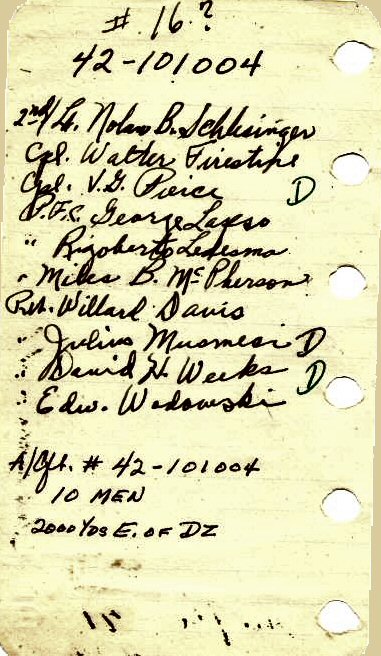 # 16?
42-101004
2nd/Lt. Nolan B. Schlesinger
Cpl. Walter Firestine
Cpl. V.G. Peice D
P.F.C. George Laxso
" Rigoberto Ledesma
" Miles B. McPherson
Pvt. Willard Davis
" Julius Musmeci D
" David H. Weeks D
" Edw. Wodowski
A/Cft. # 42-101004
10 MEN
2000 YDS E. OF DZ